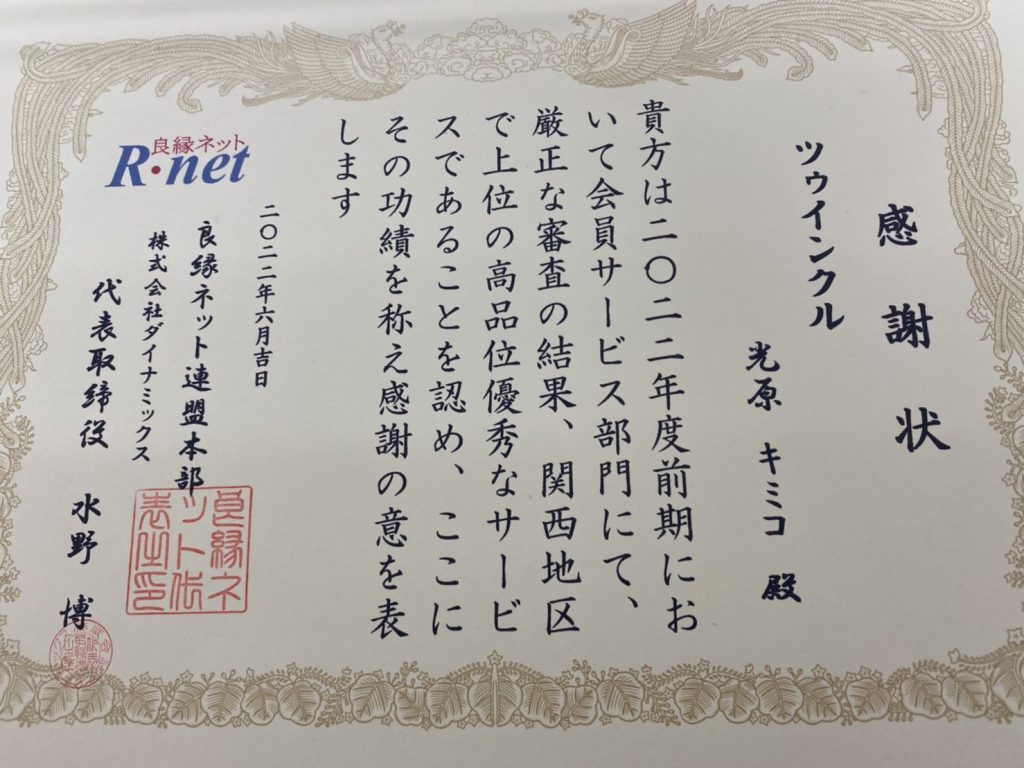 感謝状
ツゥインクル
光原 キミコ 殿
貴方は二〇二二年度前期にお
いて会員サービス部門にて、
厳正な審査の結果、関西地区
で上位の高品位優秀なサービ
スであることを認め、ここに
その功績を称え感謝の意を表
します
二〇二二年六月吉日
良縁ネット
R・net
良縁ネット連盟本部
株式会社ダイナミックス
代表取締役 水野 博
良縁ネ
ット代
表之印